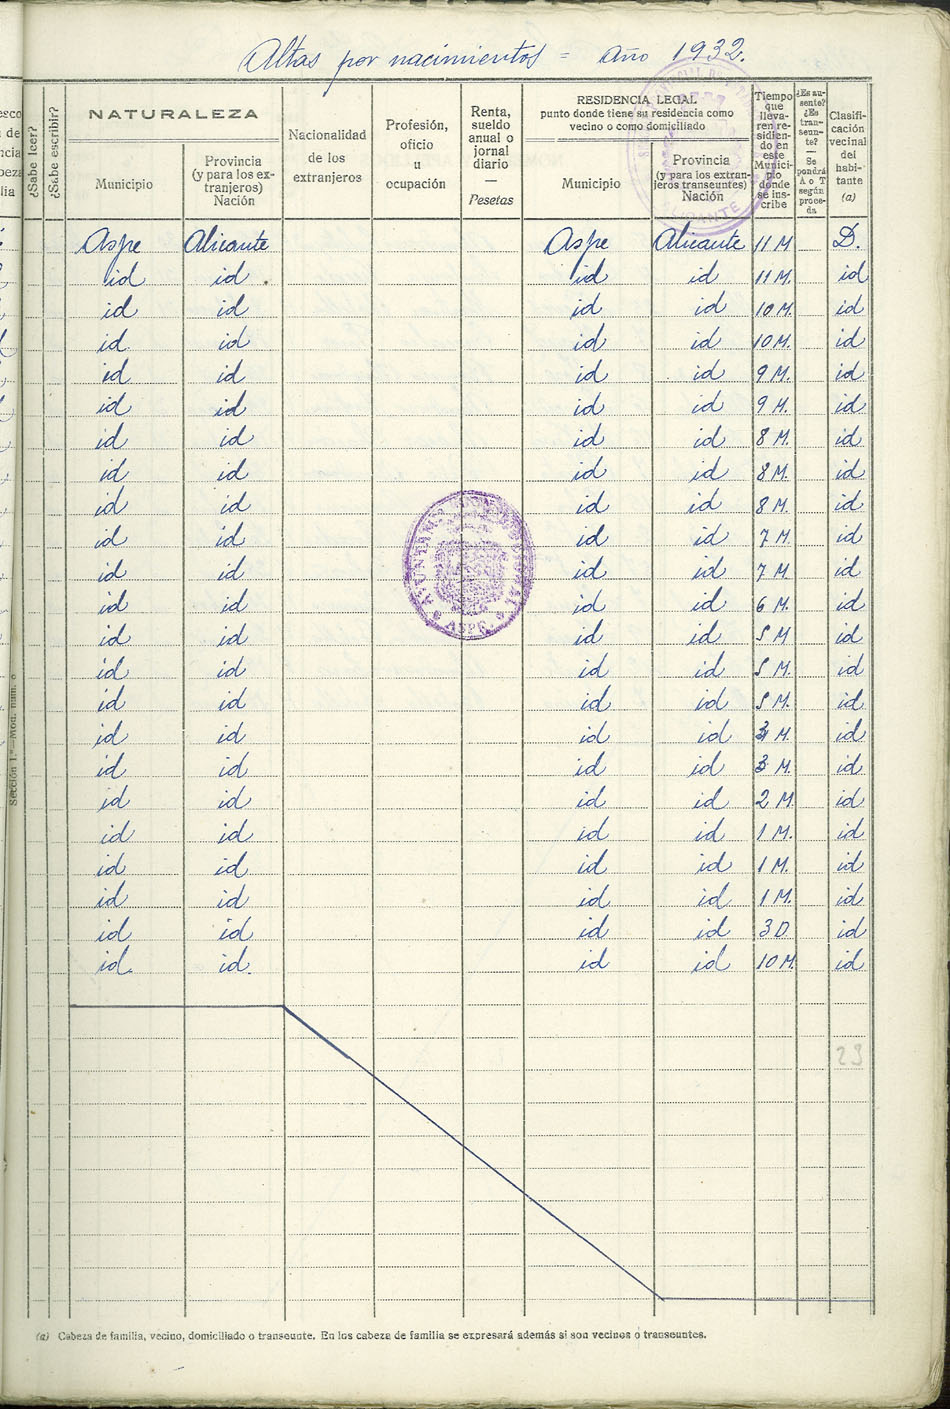 Altas por nacimientos = Año 1932.
¿Sabe leer?
¿Sabe escribir?
NATURALEZA
Municipio
Provincia
(y para los ex-
tranjeros)
Nación
Nacionalidad
de los
extranjeros
Profesión,
oficio
u
ocupación
Renta,
sueldo
anual o
jornal
diario
—
Pesetas
RESIDENCIA LEGAL
punto donde tiene su residencia como
vecino o como domiciliado
Municipio
Provincia
(y para los extran-
jeros transeuntes)
Nación
Tiempo
que
lleva-
ren re-
sidien-
do en
este
Munici-
pio
donde
se ins-
cribe
¿Es au-
sente?
¿Es
tran-
seun-
te?
—
Se
pondrá
A o T
según
proce-
da
Clasifi-
cación
vecinal
del
habi-
tante
(a)
Aspe Alicante Aspe Alicante 11 M. D.
id id id id 11 M. id
id id id id 10 M. id
id id id id 10 M. id
id id id id 9 M. id
id id id id 9 M. id
id id id id 8 M. id
id id id id 8 M. id
id id id id 8 M. id
id id id id 7 M. id
id id id id 7 M id
id id id id 6 M. id
id id id id 5 M id
id id id id 5 M. id
id id id id 5 M. id
id id id id M. id
id id id id 3 M. id
id id id id 2 M id
id id id id 1 M. id
id id id id 1 M. id
id id id id 1 M. id
id id id id 3 D. id
id. id. id id 10 M. id
ASPE
23
Sección 1.ª—Mod. núm.
(a) Cabeza de familia, vecino, domiciliado o transeunte. En los cabeza de familia se expresará además si son vecinos o transeuntes.